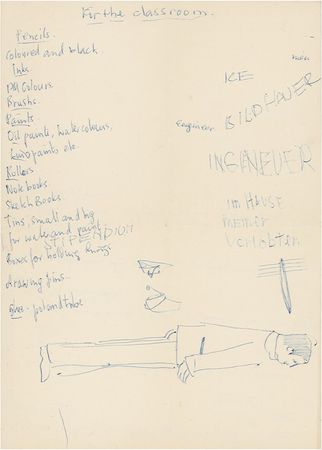 For the classroom.
Pencils.
Coloured and black.
Inks.
Colours.
Brushs.
Paints
Oil paints, Water colours,
paints etc.
Rollers
Note books.
Sketch Books.
Tins, small and big
for water and paint
STIPENDIUM
Boxes for holding things
drawing pins-
Glue - pot and tube
ICE
BILDHAUER
Engineer
INGENEUER
IM HAUSE
MEINER
Verlobten